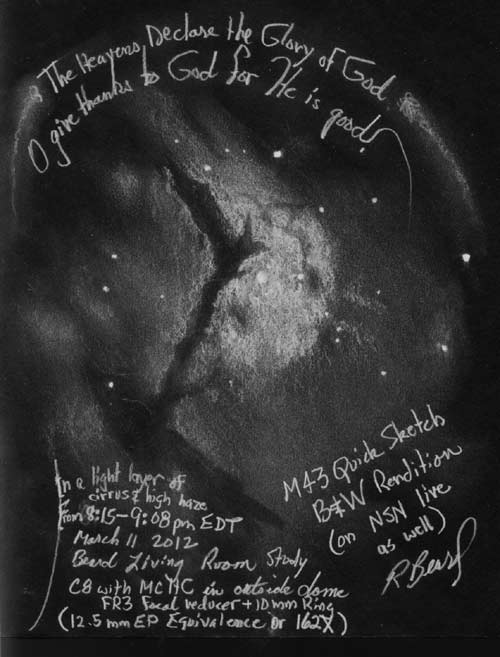 The Heavens Declare the Glory of God.
O give thanks to God for He is good!
In a light layer of
cirrus & high haze
From 8:15-9:08pm EDT
March 11 2012
Beard Living Room Study
C8 with MCHC in outside dome
FR3 Focal reducer + 10mm Ring
(12.5mm EP Equivalence or 162X)
M43 Quick Sketch
B&W Rendition
(on NSN live
as well)
R Beard